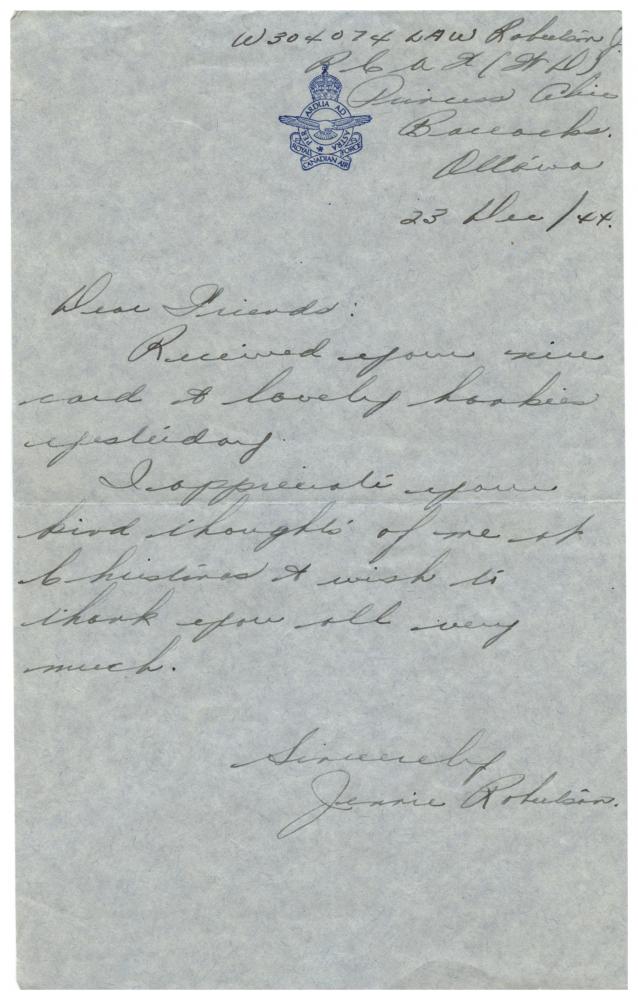 W304074 LAW Robertson J.
R C A F (W D)
Princess Alice
Barracks.
Ottawa
23 Dec/44.
PER ARDUA AD ASTRA
ROYAL CANADIAN AIR FORCE
Dear Friends:
Received your nice
card & lovely hankies
yesterday.
I appreciate your
kind thoughts of me at
Christmas & wish to
thank you all very
much.
Sincerely
Jennie Robertson.